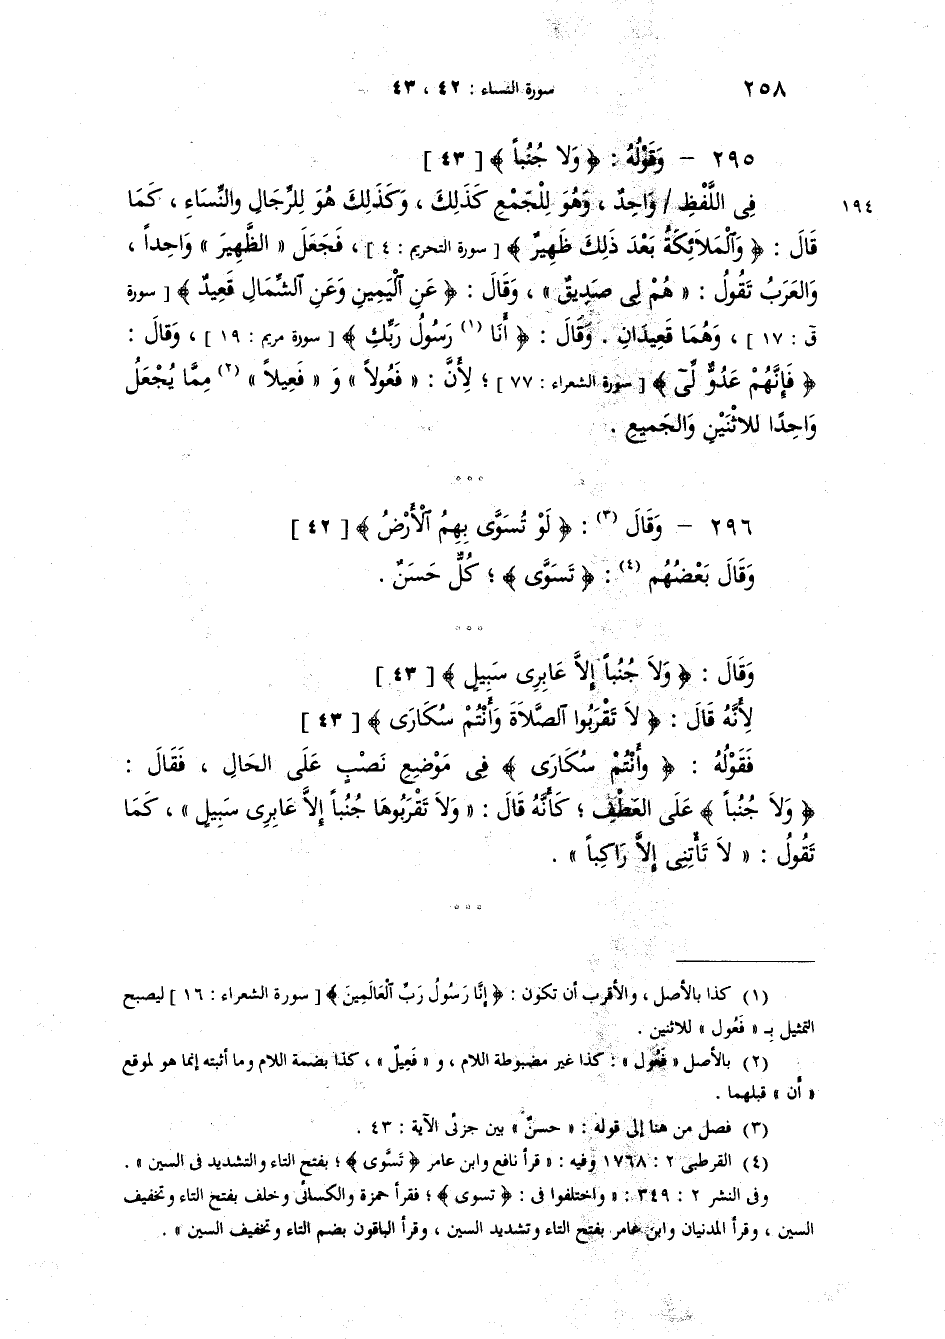 ٢٥٨ سورة النساء : ٤٢ ، ٤٣
٢٩٥ – وَقَوْلُهُ : ﴿ وَلا جُنُباً ﴾ [ ٤٣ ]
فِى اللَّفْظِ / وَاحِدٌ ، وَهُوَ لِلْجَمْعِ كَذَلِكَ ، وَكَذَلِكَ هُوَ لِلرِّجَالِ والنِّسَاءِ ، كَمَا ١٩٤
قَالَ : ﴿ وَٱلْمَلَائِكَةُ بَعْدَ ذَلِكَ ظَهِيرٌ ﴾ [ سورة التحريم : ٤ ] ، فَجَعَلَ « الظَّهِيرَ » وَاحِداً ،
وَالعَرَبُ تَقُولُ : « هُمْ لِى صَدِيقٌ » ، وَقَالَ : ﴿ عَنِ ٱلْيَمِينِ وَعَنِ ٱلشِّمَالِ قَعِيدٌ ﴾ [ سورة
قَ : ١٧ ] ، وَهُمَا قَعِيدَانِ . وَقَالَ : ﴿ أَنَا (١) رَسُولُ رَبِّكِ ﴾ [ سورة مريم : ١٩ ] ، وَقَالَ :
﴿ فَإِنَّهُمْ عَدُوٌّ لِّىٓ ﴾ [ سورة الشعراء : ٧٧ ] ؛ لِأَنَّ : « فَعُولاً » وَ « فَعِيلاً » (٢) مِمَّا يُجْعَلُ
وَاحِدًا للاثْنَيْنِ وَالجَميعِ .
٢٩٦ – وَقَالَ (٣) : ﴿ لَوْ تُسَوَّى بِهِمُ ٱلْأَرْضُ ﴾ [ ٤٢ ]
وَقَالَ بَعْضُهُم (٤) : ﴿ تَسَوَّى ﴾ ؛ كُلٌّ حَسَنٌ .
وَقَالَ : ﴿ وَلاَ جُنُباً إِلاَّ عَابِرِى سَبِيلٍ ﴾ [ ٤٣ ]
لِأَنَّهُ قَالَ : ﴿ لاَ تَقْرَبُوا ٱلصَّلاَةَ وَأَنْتُمْ سُكَارَى ﴾ [ ٤٣ ]
فَقَوْلُهُ : ﴿ وأَنْتُمْ سُكَارَى ﴾ فِى مَوْضِعِ نَصْبٍ عَلَى الحَالِ ، فَقَالَ :
﴿ وَلاَ جُنُباً ﴾ عَلَى العَطْفِ ؛ كَأَنَّهُ قَالَ : « وَلاَ تَقْرَبُوهَا جُنُباً إِلاَّ عَابِرِى سَبِيلٍ » ، كَمَا
تَقُولُ : « لاَ تَأْتِنِى إِلاَّ رَاكِباً » .
(١) كذا بالأصل ، والأقرب أن تكون : ﴿ إِنَّا رَسُولُ رَبِّ ٱلْعَالَمِينَ ﴾ [ سورة الشعراء : ١٦ ] ليصبح
التمثيل بـِ « فَعُول » للاثنين .
(٢) بالأصل « فَعُول » : كذا غير مضبوطة اللام ، و « فَعِيلٌ » ، كذا بضمة اللام وما أثبته إنما هو لموقع
« أن » قبلهما .
(٣) فصل من هنا إلى قوله : « حسنٌ » بين جزئى الآية : ٤٣ .
(٤) القرطبى ٢ : ١٧٦٨ وفيه : « قرأ نافع وابن عامر ﴿ تَسَّوى ﴾ ؛ بفتح التاء والتشديد فى السين » .
وفى النشر ٢ : ٣٤٩ : « واختلفوا فى : ﴿ تسوى ﴾ ؛ فقرأ حمزة والكسائى وخلف بفتح التاء وتخفيف
السين ، وقرأ المدنيان وابن عامر بفتح التاء وتشديد السين ، وقرأ الباقون بضم التاء وتخفيف السين » .